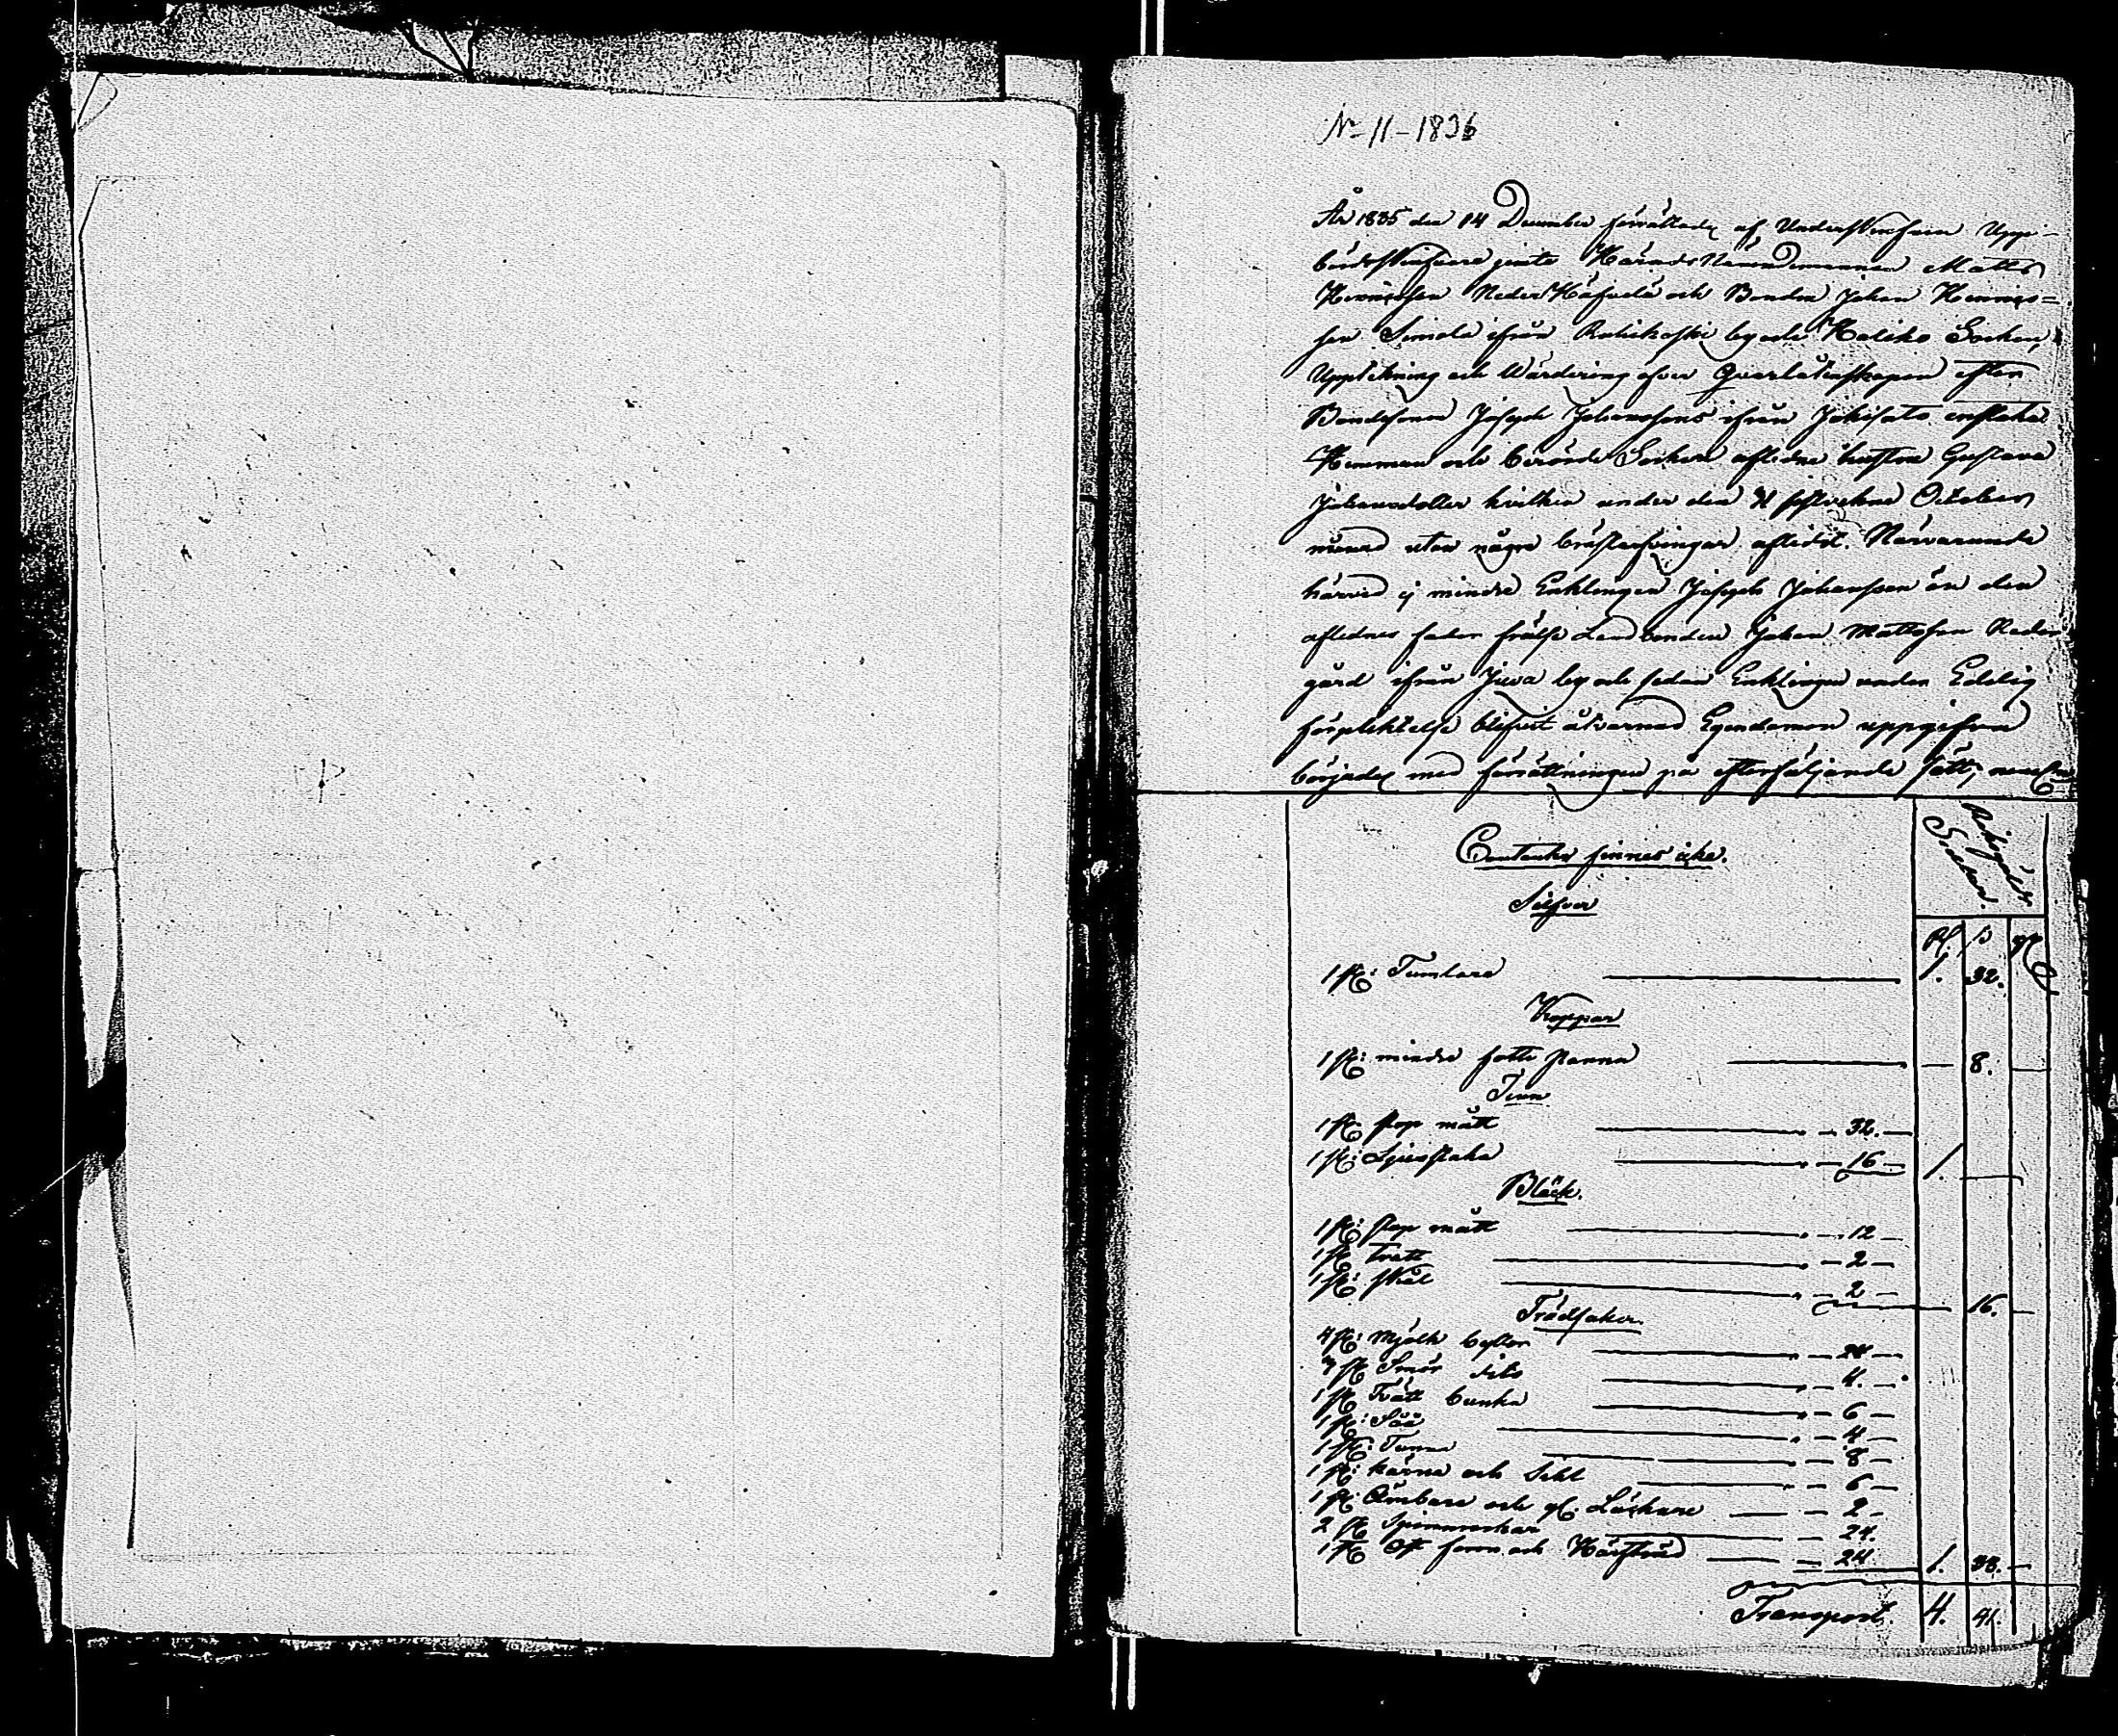 No 11 - 1836
År 1835 den 14 December förrättades af Underskrefven Upp-
bördsskrifvare jemte Härads Nämndemannen Matts
Henricsson Neder Häfvelä och Bonden Johan Henrics=
son Simola ifrån by och Haliko Socken,
Uppteckning och Wärdering öfver Qvarlåtenskapen efter
Bondesonen Joseph Johanssons ifrån Jokisato enstaka
Hemman och berörde Socken aflidne hustru Gustava
Johansdotter hvilken under den sistvekne October
månad utan några bröstarfvingar aflidit. Närvarande
härvid ej mindre Enklingen Joseph Johansson än den
aflidnes fader frälse Landbonden Johan Mattsson Neder
gård ifrån Juva by och sedan Enklingen under Edelig
förpliktelse blifvit åtvarnad Egendomen uppgifva
börjades med förrättningen på efterföljande sätt, nemligen
Contanter finnes icke.
Silfver
Riksgälds
Sedlar.
Rd. ß rst
1 st: Tumlare 1. 32.
Koppar
1 st: mindre fotts panna — 8. —
Tenn
1 st: stop mått — 32. —
1 st: Ljusstaka — 16 — 1. —
Bläck.
1 st: stop mått — 12 —
1 st: Tratt — 2 —
1 st: skål — 2 — — 16. —
Trädsaker
4 st: Mjölk byttor — 24 —
3 st: Smör dito — 4. —
1 st: Tvätt bunka — 6 —
1 st: Såå — 4 —
1 st: Tunna — 8 —
1 st: kärna och Sikt — 6 —
1 st: Ämbare och gl. Låckare — 2 —
2 st: Spinnrockar — 24.
1 st: och Härfträd — 24 1. 38. —
Transport. 4. 41.